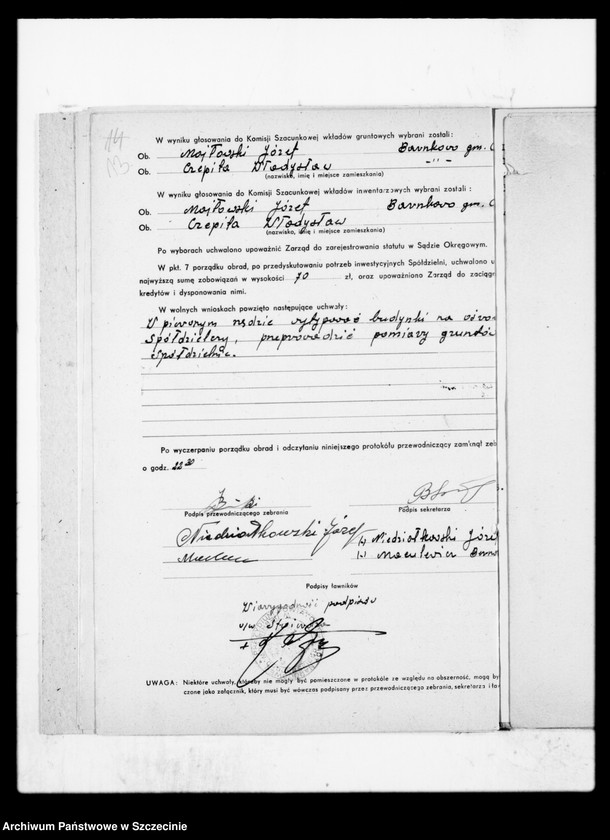 14
W wyniku głosowania do Komisji Szacunkowej wkładów gruntowych wybrani zostali :
Ob. Majłowski Józef Barnkowo gm.
Ob. Czepiła Władysław -"-
(nazwisko, imię i miejsce zamieszkania)
W wyniku głosowania do Komisji Szacunkowej wkładów inwentarzowych wybrani zostali :
Ob. Majłowski Józef Barnkowo gm.
Ob. Czepiła Władysław
(nazwisko, imię i miejsce zamieszkania)
Po wyborach uchwalono upoważnić Zarząd do zarejestrowania statutu w Sądzie Okręgowym.
W pkt. 7 porządku obrad, po przedyskutowaniu potrzeb inwestycyjnych Spółdzielni, uchwalono u
najwyższą sumę zobowiązań w wysokości 70 zł, oraz upoważniono Zarząd do zaciąg
kredytów i dysponowania nimi.
W wolnych wnioskach powzięto następujące uchwały:
W pierwszym rzędzie wytypować budynki na
spółdzielczy, przeprowadzić pomiary gruntów
Spółdzielni.
Po wyczerpaniu porządku obrad i odczytaniu niniejszego protokółu przewodniczący zamknął zeb
o godz. 22 30
Podpis przewodniczącego zebrania Podpis sekretarza
Niedziałkowski Józef /-/ Niedziałkowski Józef
/-/ Maculewicz
Podpisy ławników
Wiarygodność podpisów
UWAGA : Niektóre uchwały, któreby nie mogły być pomieszczone w protokóle ze względu na obszerność, mogą by
czone jako załącznik, który musi być wówczas podpisany przez przewodniczącego zebrania, sekretarza i ław
Archiwum Państwowe w Szczecinie